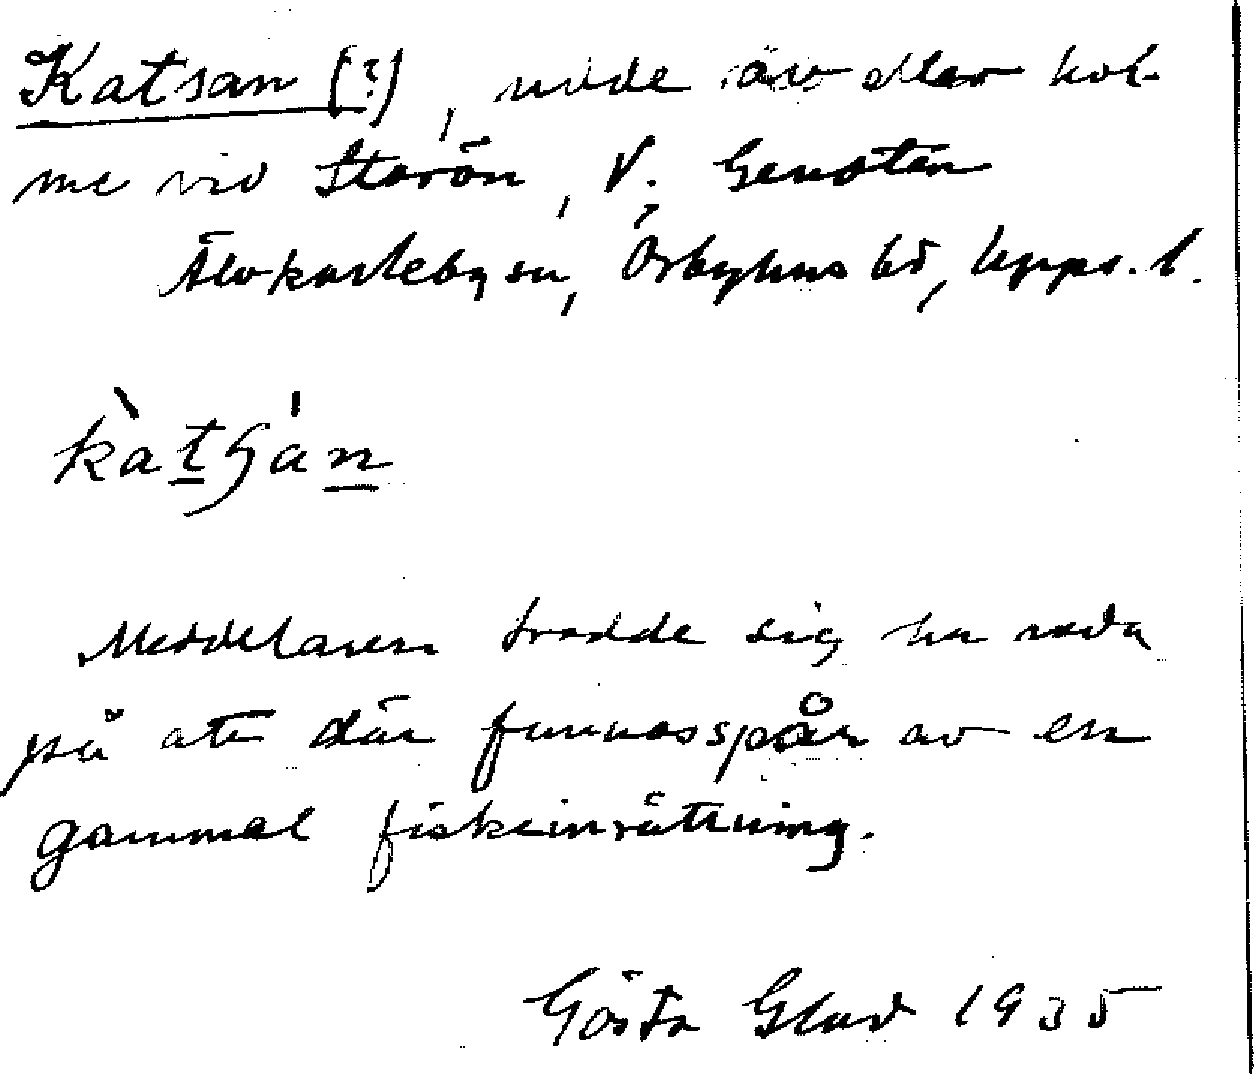 Katsan (?), udde äv eller hol-
me vid Storön, V.
Älvkarleby sn, Örbyhus hd, Upps. l.
kàtsán
Meddelaren trodde sig ha reda
på att där funnes spår av en
gammal fiskeinrättning.
Gösta Glad 1935